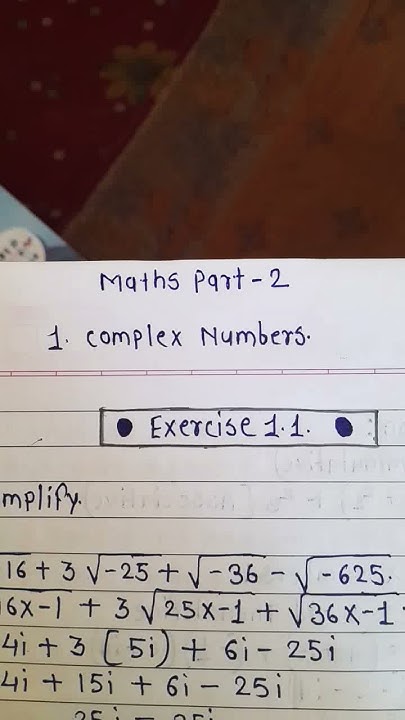 Maths Part-2
1. Complex Numbers.
• Exercise 1.1. •
mplify.
16 + 3 √-25 + √-36 - √-625.
6x-1 + 3 √25x-1 + √36x-1
4i + 3 (5i) + 6i - 25i
4i + 15i + 6i - 25i